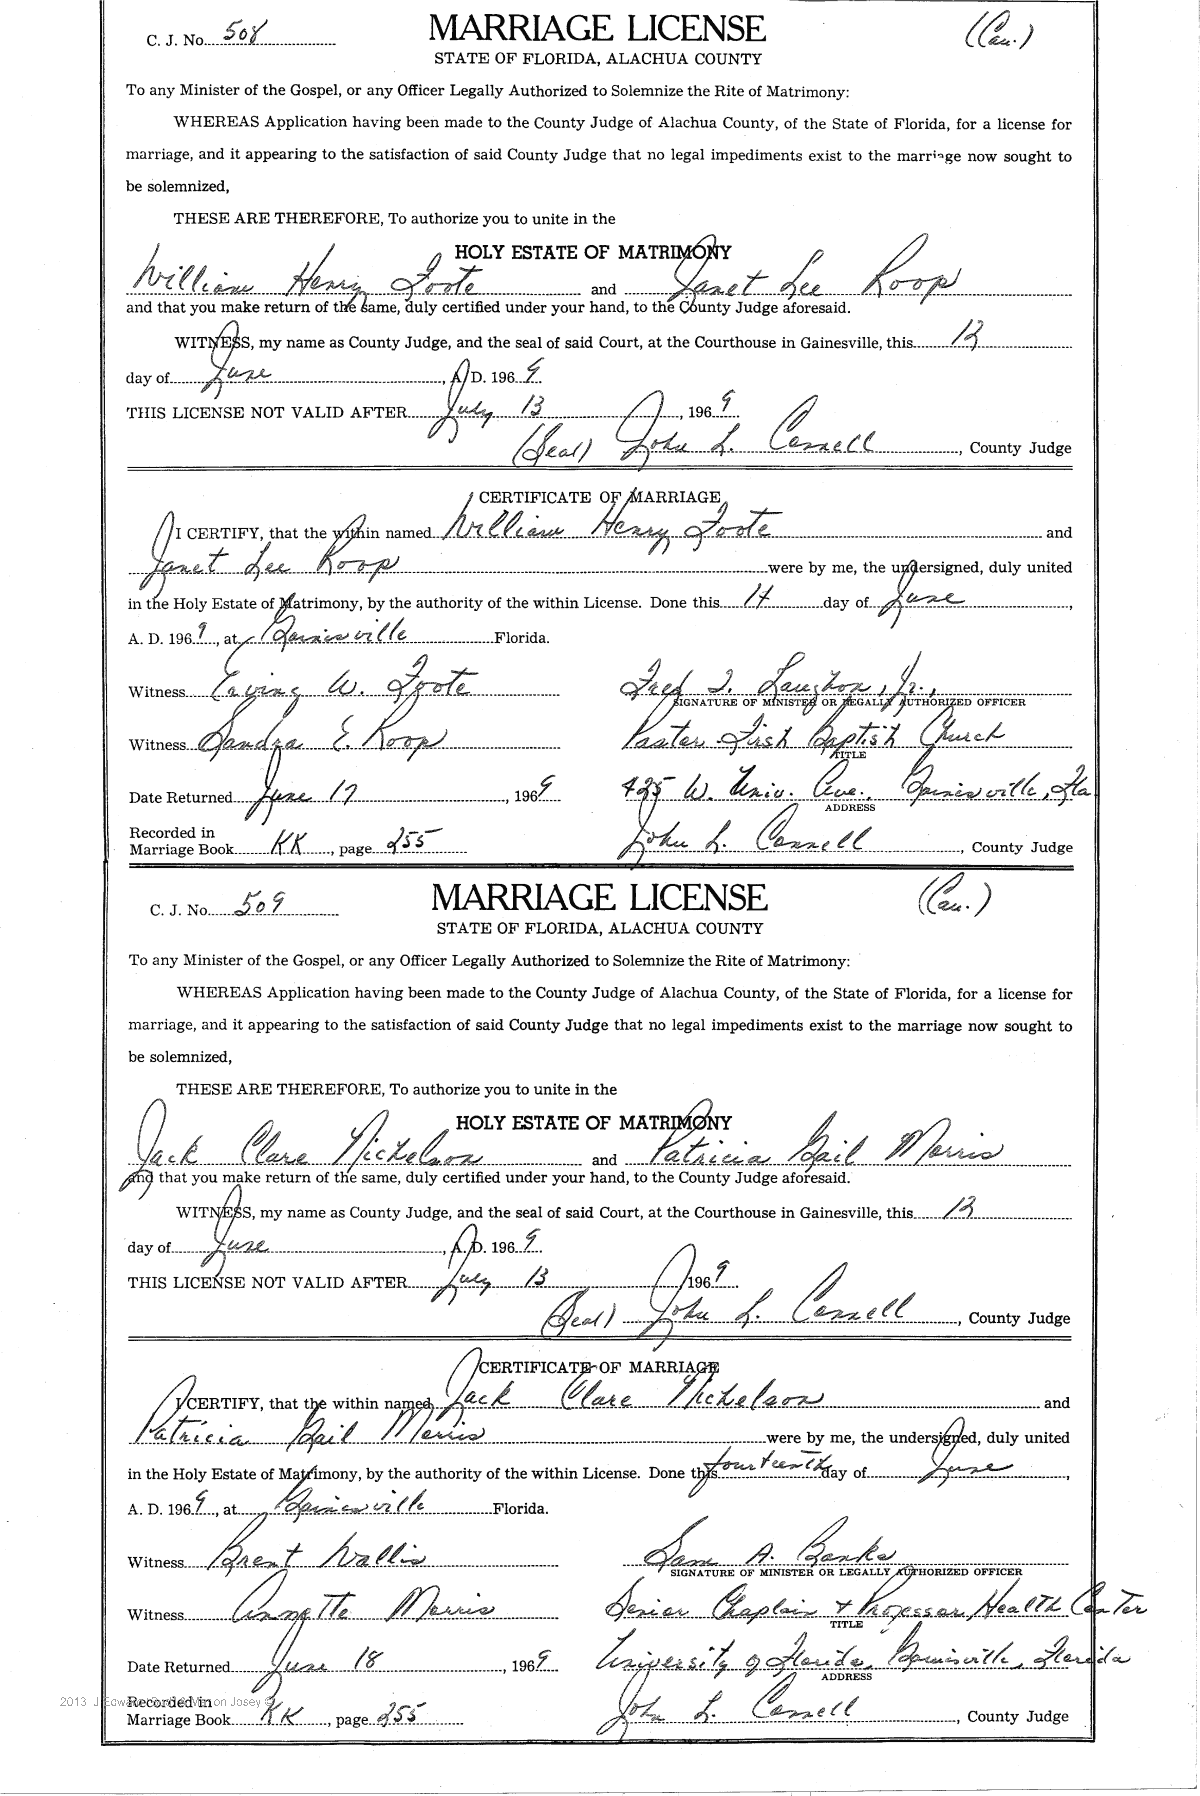 C. J. No. 508 MARRIAGE LICENSE (Cau.)
STATE OF FLORIDA, ALACHUA COUNTY
To any Minister of the Gospel, or any Officer Legally Authorized to Solemnize the Rite of Matrimony:
WHEREAS Application having been made to the County Judge of Alachua County, of the State of Florida, for a license for
marriage, and it appearing to the satisfaction of said County Judge that no legal impediments exist to the marriage now sought to
be solemnized,
THESE ARE THEREFORE, To authorize you to unite in the
HOLY ESTATE OF MATRIMONY
William Henry Foote and Janet Lee Roop
and that you make return of the same, duly certified under your hand, to the County Judge aforesaid.
WITNESS, my name as County Judge, and the seal of said Court, at the Courthouse in Gainesville, this 13
day of June, A. D. 1969.
THIS LICENSE NOT VALID AFTER July 13, 1969.
(Seal) John L. Connell, County Judge
CERTIFICATE OF MARRIAGE
I CERTIFY, that the within named William Henry Foote and
Janet Lee Roop were by me, the undersigned, duly united
in the Holy Estate of Matrimony, by the authority of the within License. Done this 14 day of June,
A. D. 1969, at Gainesville Florida.
Witness Erving W. Foote Fred T. Laughon, Jr.,
SIGNATURE OF MINISTER OR LEGALLY AUTHORIZED OFFICER
Witness Sandra E. Roop Pastor First Baptist Church
TITLE
Date Returned June 17, 1969 425 W. Univ. Ave., Gainesville, Fla
ADDRESS
Recorded in
Marriage Book KK, page 255 John L. Connell, County Judge
C. J. No. 509 MARRIAGE LICENSE (Cau.)
STATE OF FLORIDA, ALACHUA COUNTY
To any Minister of the Gospel, or any Officer Legally Authorized to Solemnize the Rite of Matrimony:
WHEREAS Application having been made to the County Judge of Alachua County, of the State of Florida, for a license for
marriage, and it appearing to the satisfaction of said County Judge that no legal impediments exist to the marriage now sought to
be solemnized,
THESE ARE THEREFORE, To authorize you to unite in the
HOLY ESTATE OF MATRIMONY
Jack Clare Nichelson and Patricia Gail Morris
and that you make return of the same, duly certified under your hand, to the County Judge aforesaid.
WITNESS, my name as County Judge, and the seal of said Court, at the Courthouse in Gainesville, this 13
day of June, A. D. 1969.
THIS LICENSE NOT VALID AFTER July 13, 1969
(Seal) John L. Connell, County Judge
CERTIFICATE OF MARRIAGE
I CERTIFY, that the within named Jack Clare Nichelson and
Patricia Gail Morris were by me, the undersigned, duly united
in the Holy Estate of Matrimony, by the authority of the within License. Done this fourteenth day of June,
A. D. 1969, at Gainesville Florida.
Witness Brent Wallis Sam A. Banks
SIGNATURE OF MINISTER OR LEGALLY AUTHORIZED OFFICER
Witness Annette Morris Senior Chaplain & Professor, Health Center
TITLE
Date Returned June 18, 1969 University of Florida, Gainesville, Florida
ADDRESS
Recorded in
Marriage Book KK, page 255 John L. Connell, County Judge